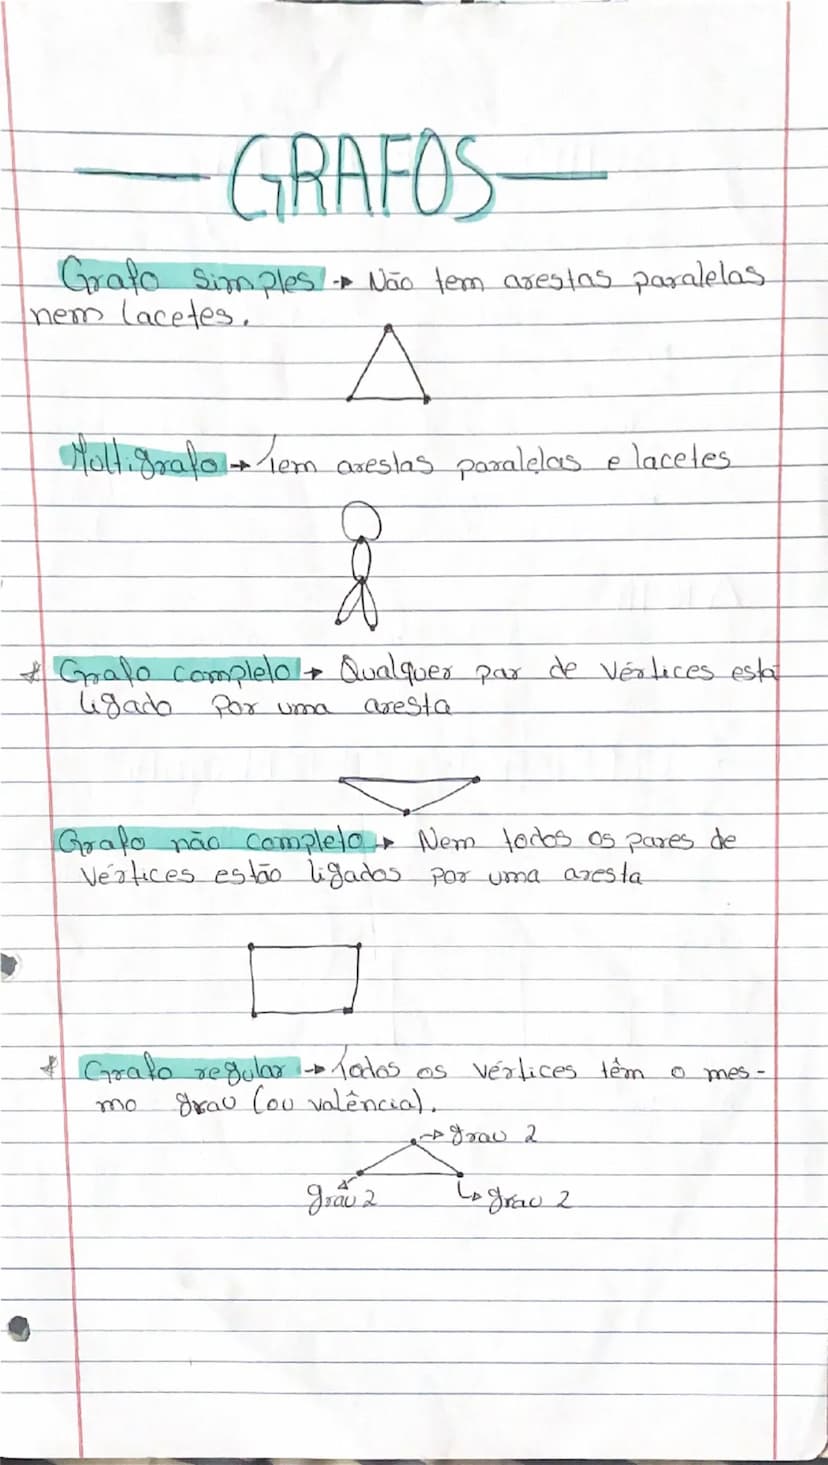 GRAFOS
Grafo simples → Não tem arestas paralelas
nem lacetes.
Multigrafo → Tem arestas paralelas e lacetes
* Grafo completo → Qualquer par de vértices está
ligado por uma aresta
Grafo não completo → Nem todos os pares de
vértices estão ligados por uma aresta
* Grafo regular → Todos os vértices têm o mes-
mo grau (ou valência).
→ grau 2
grau 2 ↳ grau 2